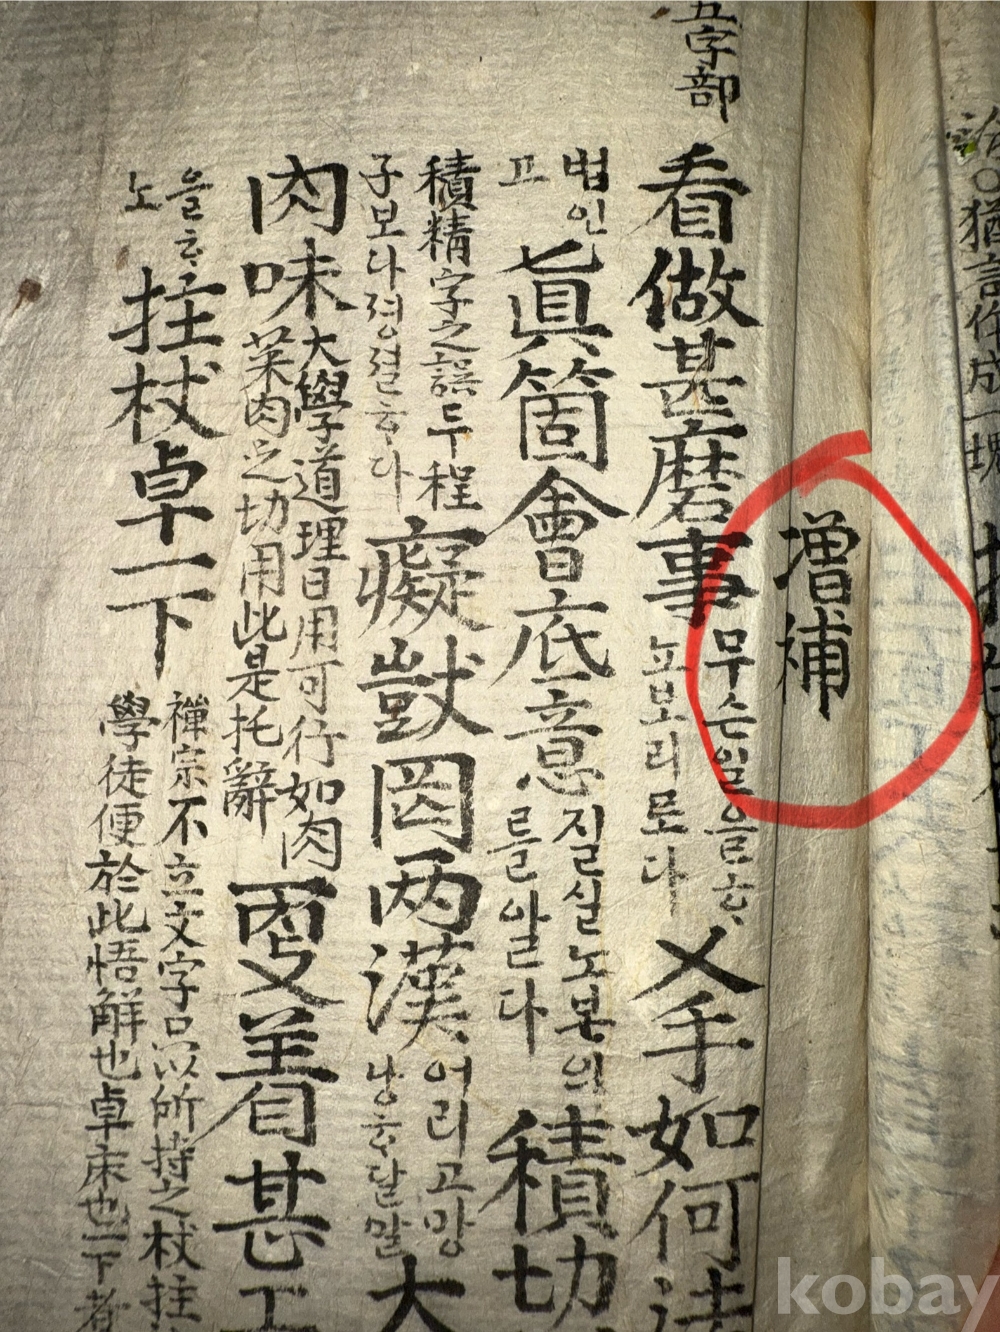 猶言作成一塊
增補
五字部
看做甚麽事 무슨일을음ᄒᆞ
노보리로다
乂手如何法
법인
고
眞箇會底意 진실노본의
를알다
積功
積精字之誤두程
子보다졍졀ᄒᆞ다
癡獃罔两漢 어리고망
냥ᄒᆞᆫ달말
大
肉味 大學道理日用可行如肉
菜肉之切用此是托辭
要着甚工
을ᄒᆞ
노
拄杖卓一下 禪宗不立文字只以所持之杖拄
學徒便於此悟解也卓床也一下者
kobay